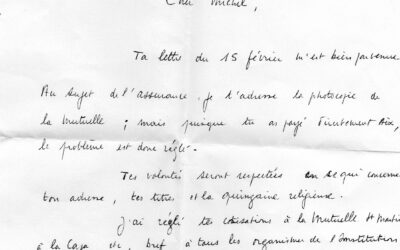 Cher Michel,
Ta lettre du 15 février m'est bien parvenue.
Au sujet de l'assurance, je t'adresse la photocopie de
la mutuelle ; mais puisque tu as payé directement Aix,
le problème est donc réglé.
Tes volontés seront respectées en ce qui concerne
ton adresse, tes titres et la quinzaine religieuse.
J'ai réglé tes cotisations à la mutuelle St Martin
à la Casa etc, bref à tous les organismes de l'Institution